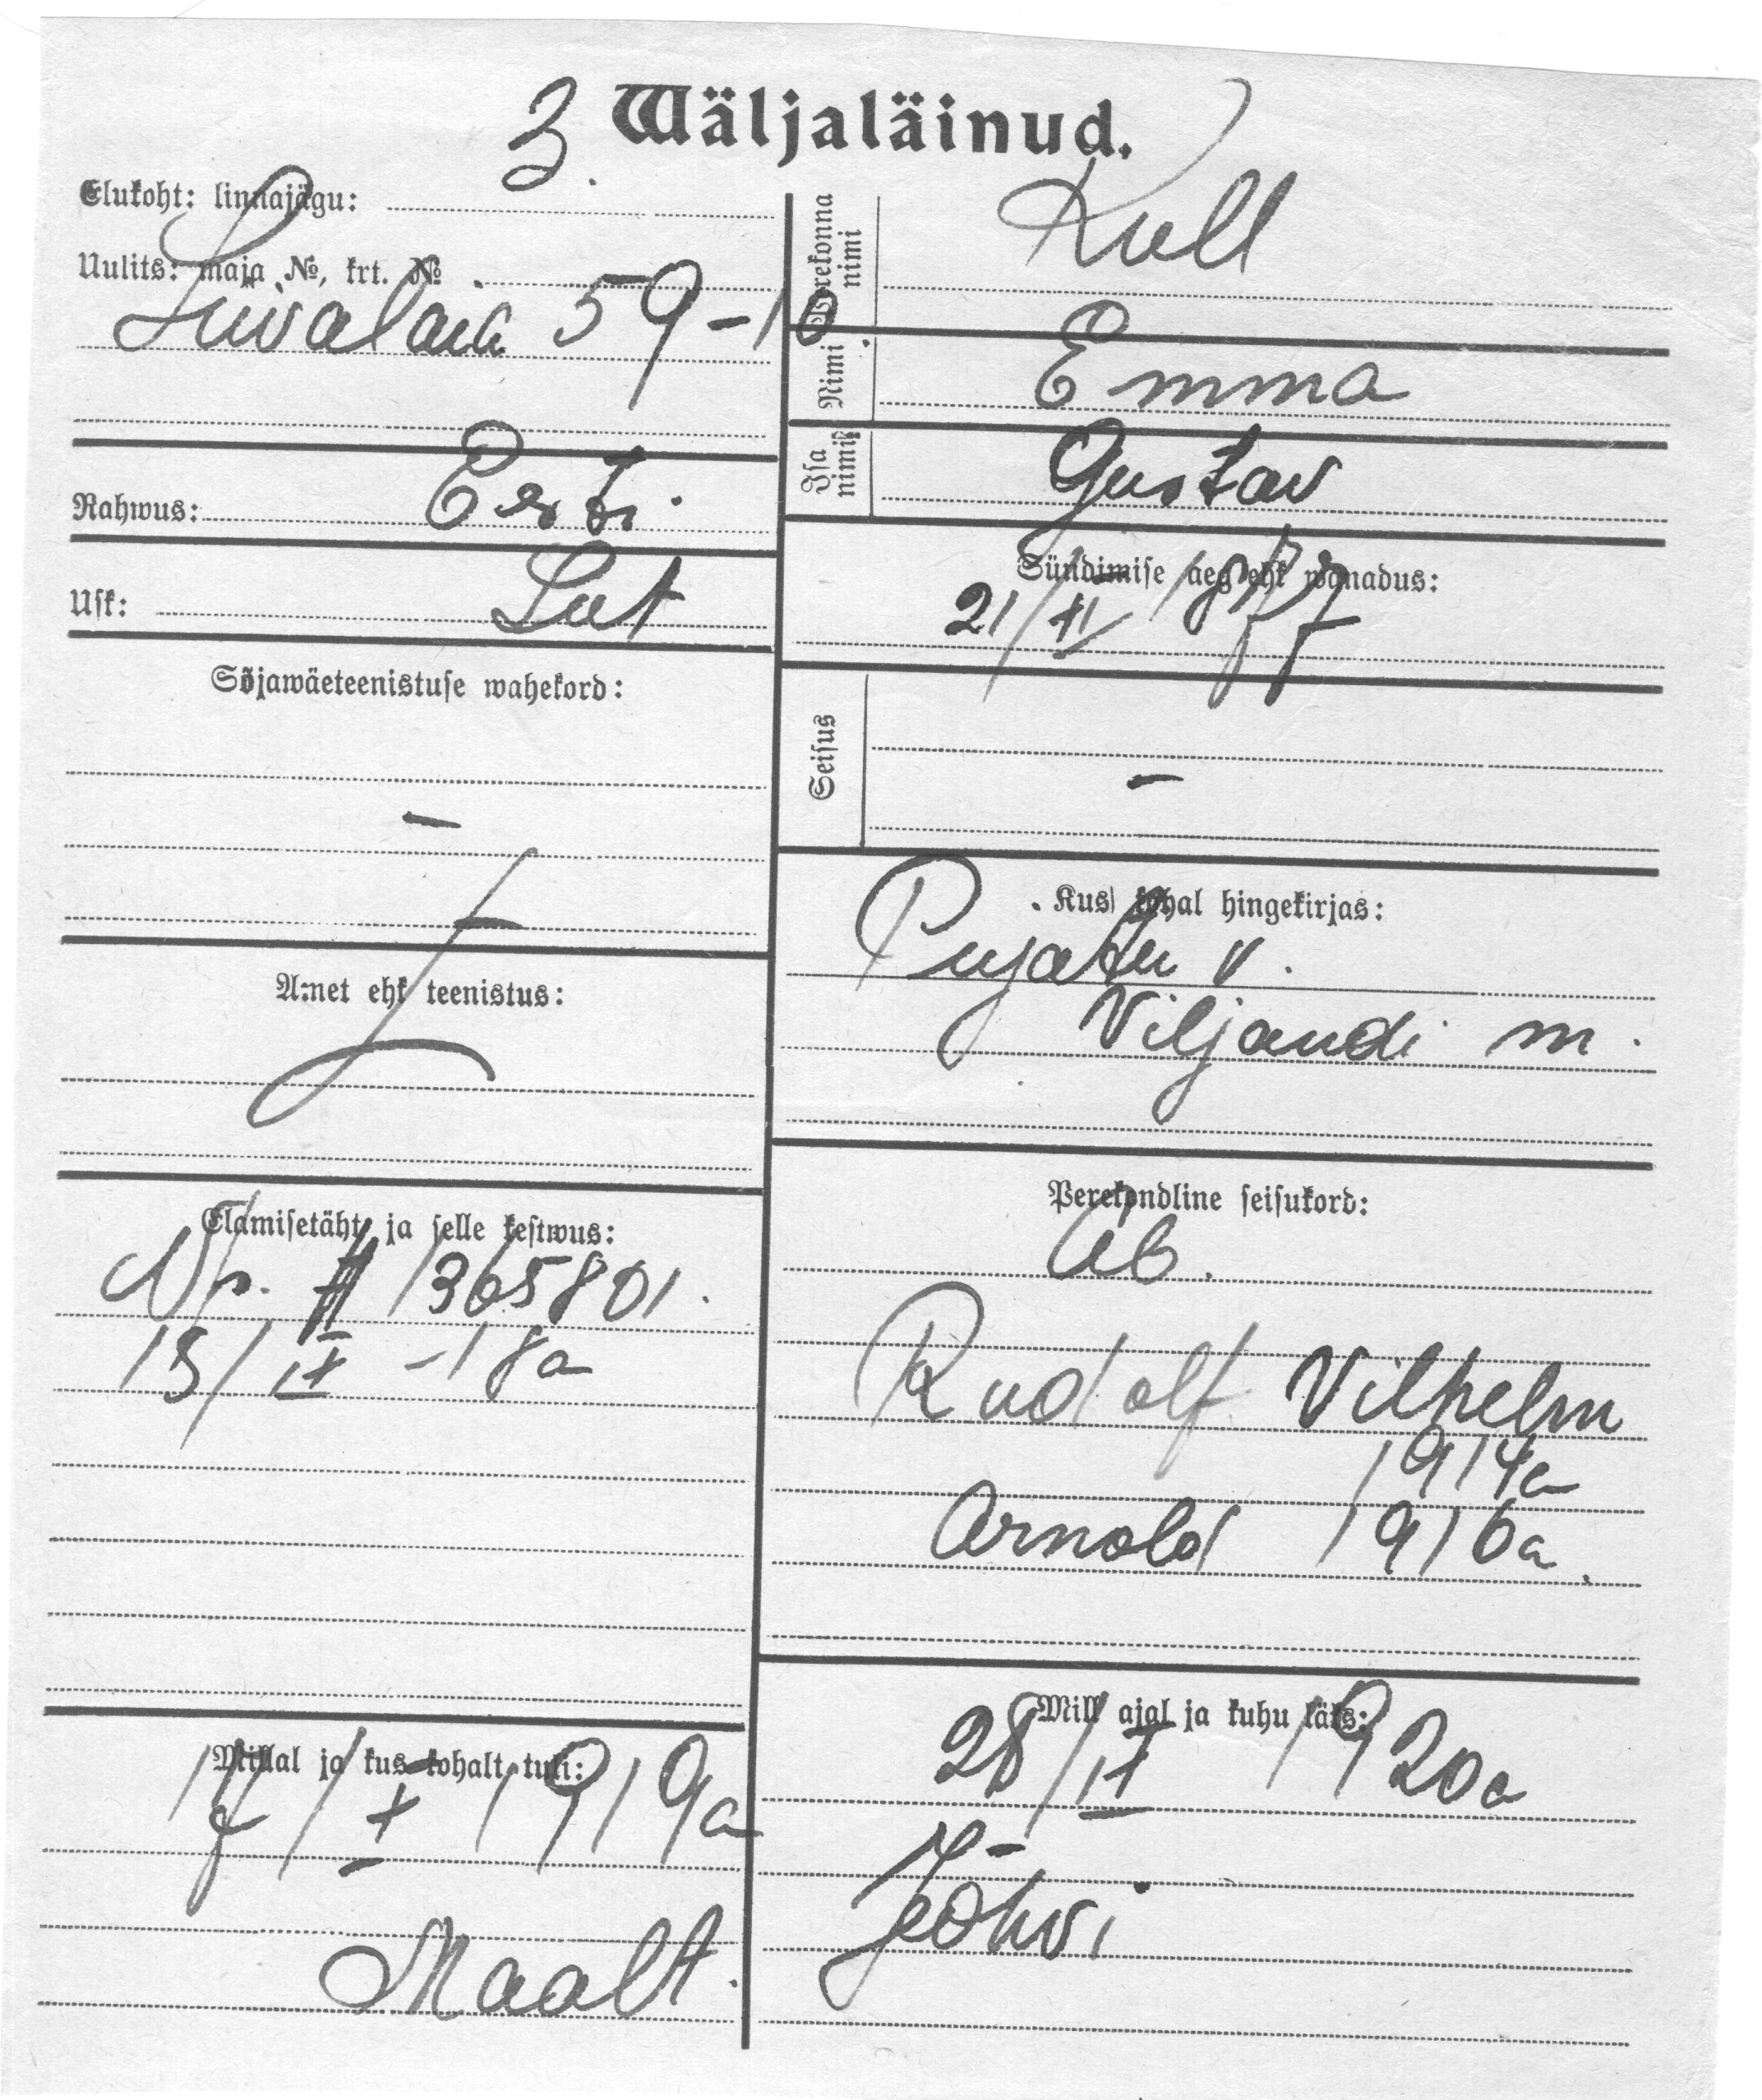 3. Wäljaläinud.
Elukoht: linnajägu:
Uulits: maja №, krt. №
59-10
Rahwus: Eesti
Usk: Lut
Sõjawäeteenistuse wahekord:
-
Amet ehk teenistus:
-
Elamisetäht ja selle kestwus:
№ 1365801.
13/IX -18a
Millal ja kus kohalt tuli:
17/X 1919a
Maalt.
Perekonna nimi Kull
Nimi Emma
Isa nimi Gustav
Sündimise aeg ehk wanadus:
21/II 1877
Seisus -
Kus kohal hingekirjas:
Pujatu v.
Viljandi m.
Perekondline seisukord:
ab.
Rudolf Vilhelm
1914a
Arnold 1916a.
Mill ajal ja kuhu läks:
28/IX 1920a
Jõhvi